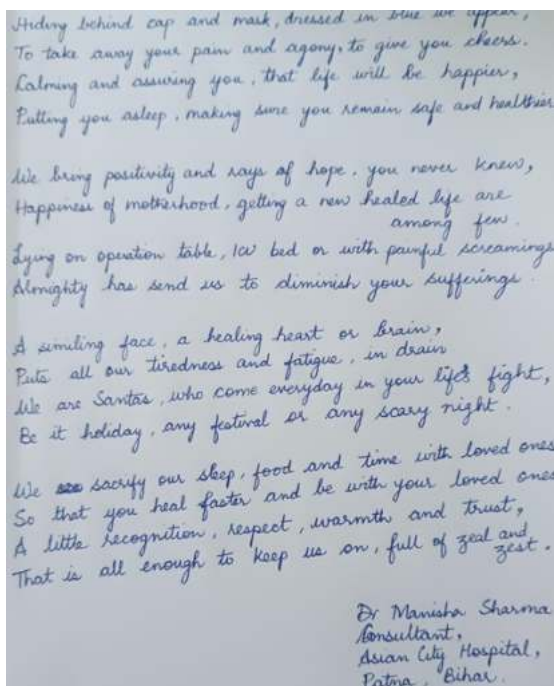 Hiding behind cap and mask, dressed in blue we appear,
To take away your pain and agony, to give you cheers.
Calming and assuring you, that life will be happier,
Putting you asleep, making sure you remain safe and healthier
We bring positivity and rays of hope, you never knew,
Happiness of motherhood, getting a new healed life are
among few.
Lying on operation table, ICU bed or with painful screamings
Almighty has send us to diminish your sufferings.
A similing face, a healing heart or brain,
Puts all our tiredness and fatigue, in drain
We are Santas, who come everyday in your life's fight,
Be it holiday, any festival or any scary night.
We sacrify our sleep, food and time with loved ones
So that you heal faster and be with your loved ones
A little recognition, respect, warmth and trust,
That is all enough to keep us on, full of zeal and
zest.
Dr Manisha Sharma
Consultant,
Asian City Hospital,
Patna, Bihar.